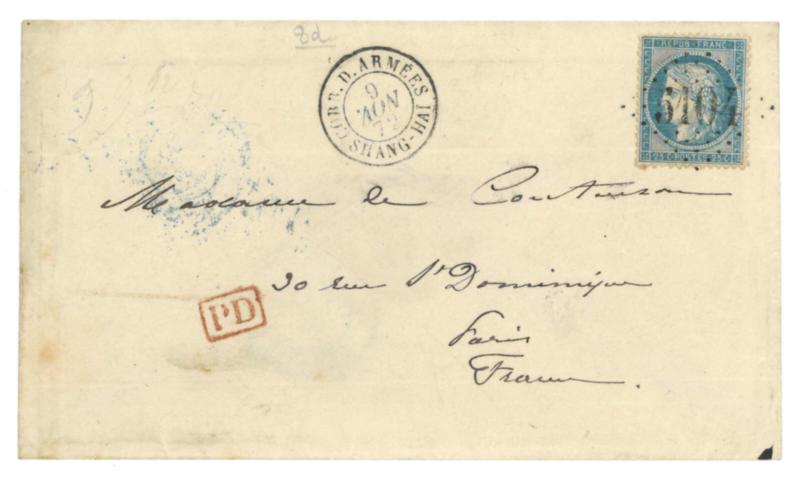 8d
CORR. D. ARMÉES
9
NOV
72
SHANG-HAI
REPUB. FRANC.
5104
25 C POSTES 25 C
Madame de
30 rue St Dominique
PD
Paris
France.